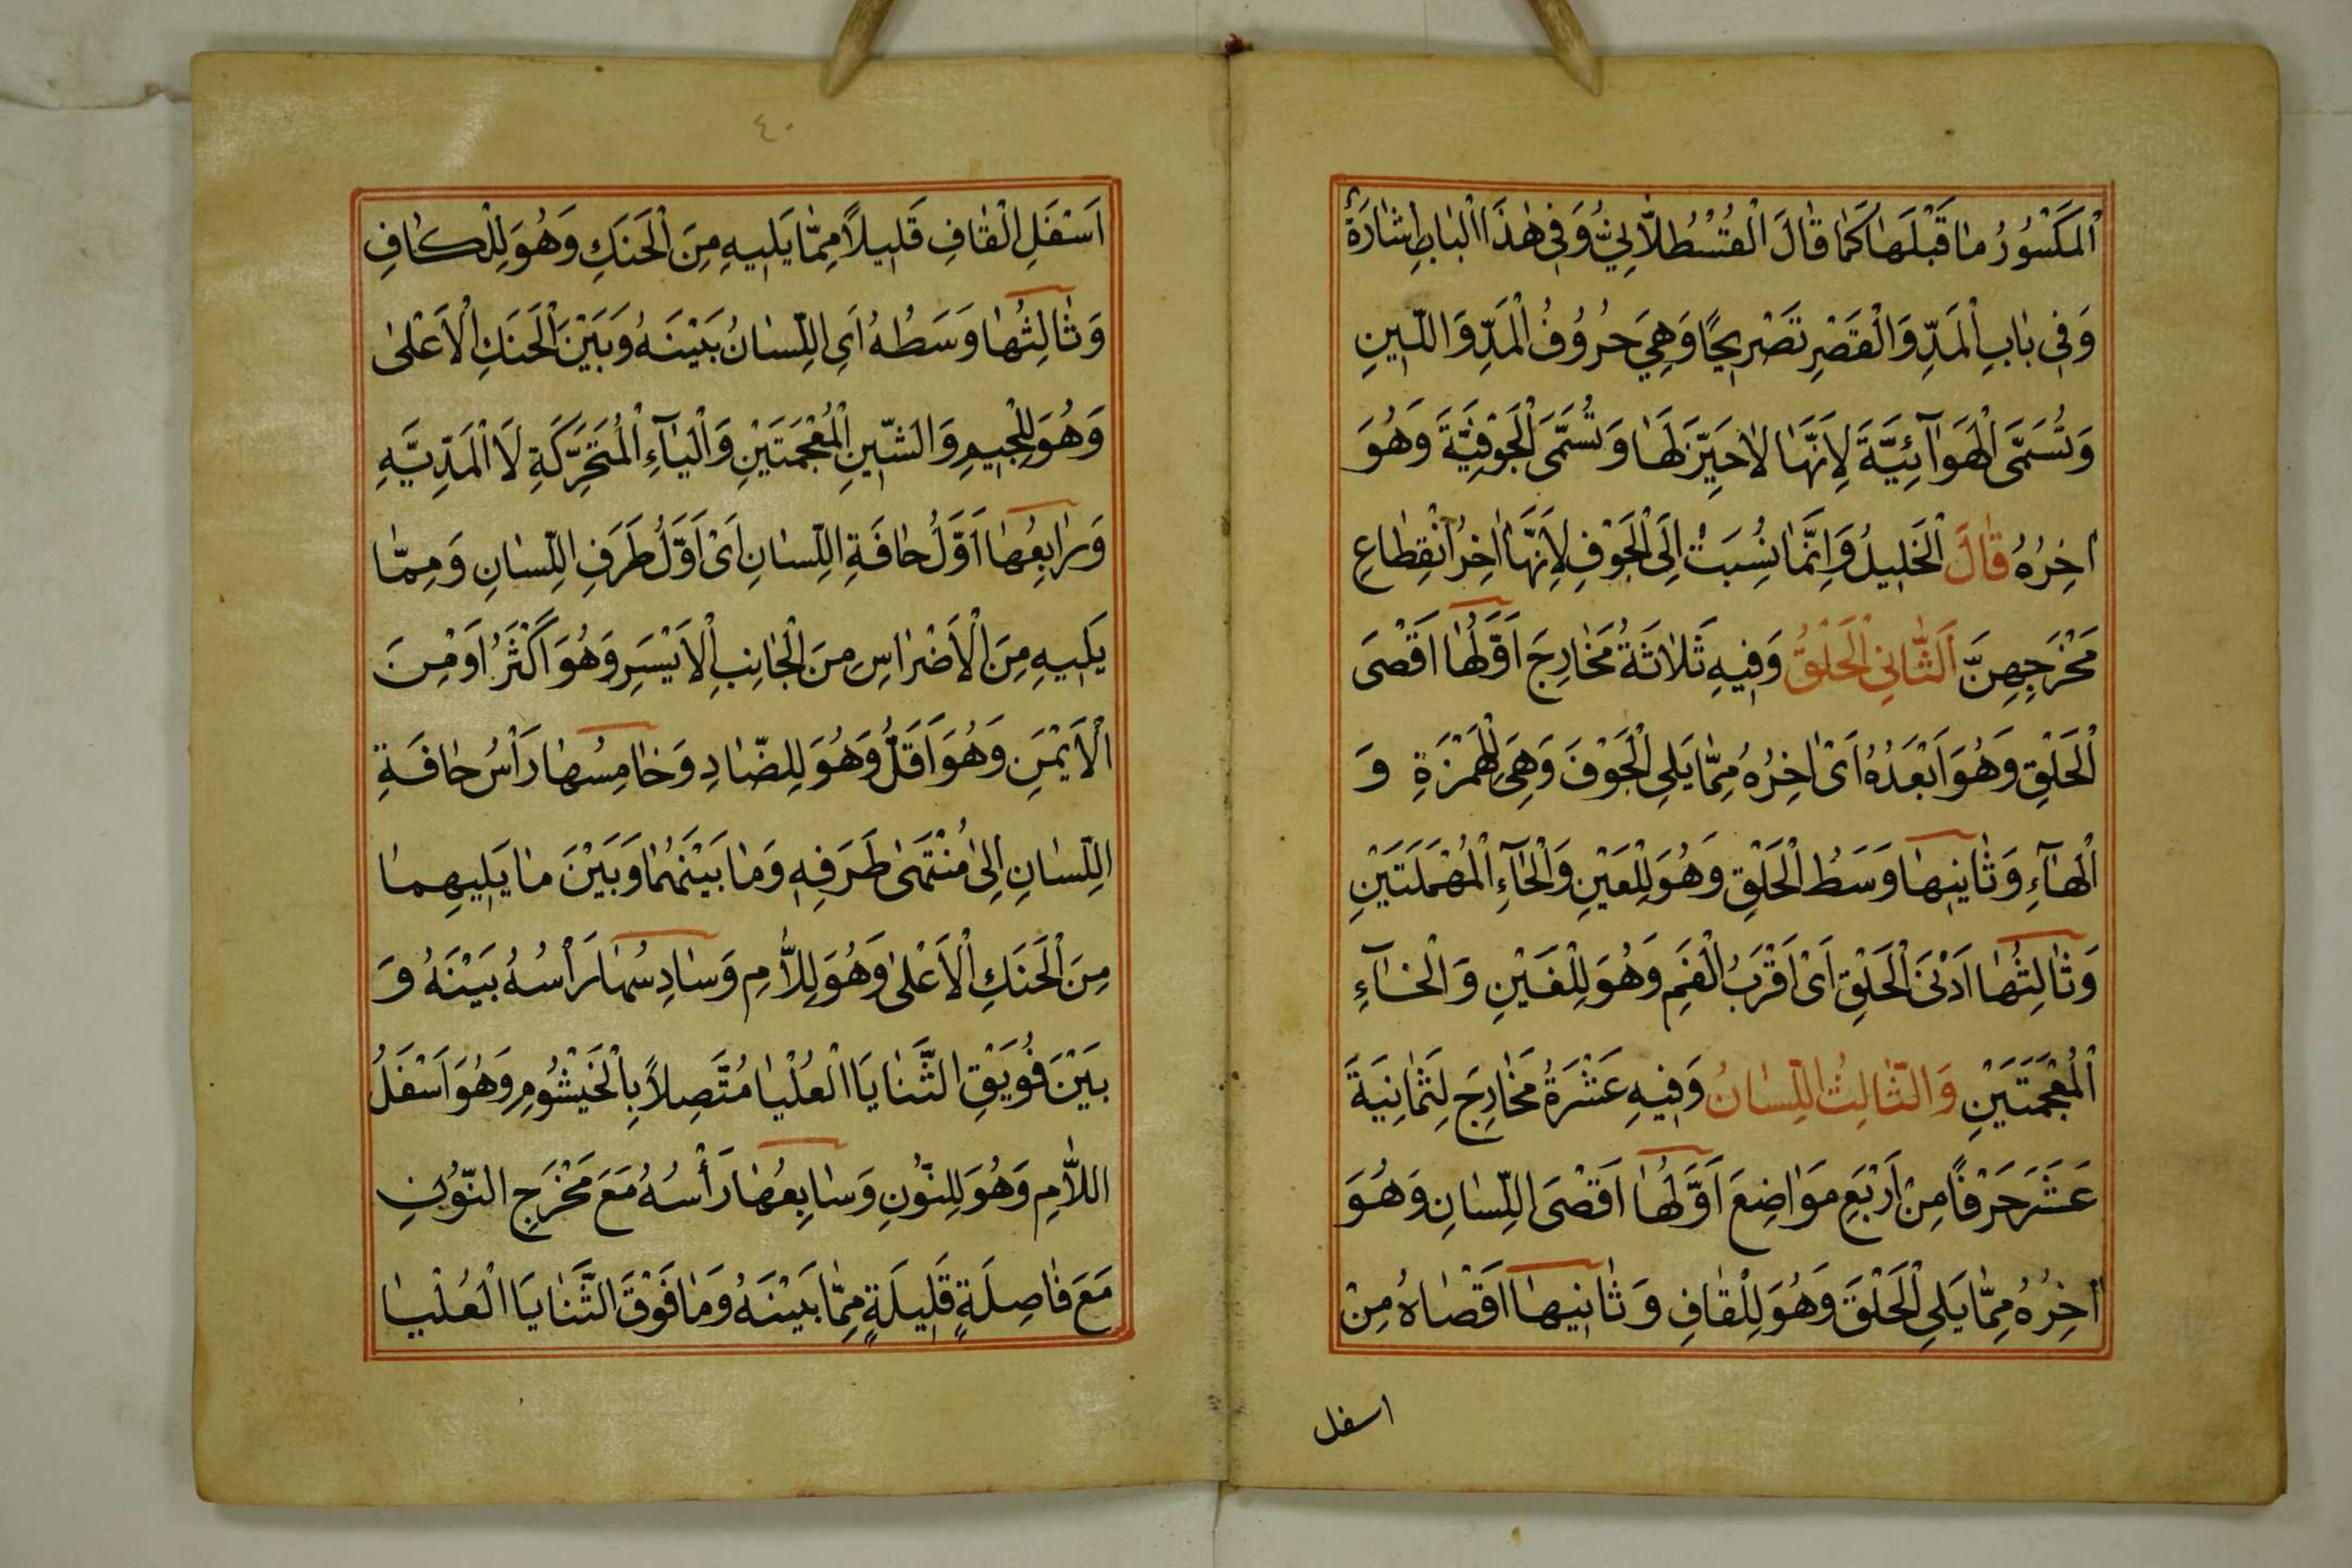 اَلْمَكْسُوْرُ مَا قَبْلَهَا كَمَا قَالَ الْقُسْطُلَّانِيُّ وَفِي هٰذَا الْبَابِ اِشَارَةٌ
وَفِي بَابِ الْمَدِّ وَالْقَصْرِ تَصْرِيْحًا وَهِيَ حُرُوْفُ الْمَدِّ وَاللّٰيِنِ
وَتُسَمَّى الْهَوَآئِيَّةَ لِاَنَّهَا لَاحَيِّزَ لَهَا وَتُسَمَّى الْجَوْفِيَّةَ وَهُوَ
اٰخِرُهُ قَالَ الْخَلِيْلُ وَاِنَّمَا نُسِبَتْ اِلَى الْجَوْفِ لِاَنَّهَا اٰخِرُ انْقِطَاعِ
مَخْرَجِهِنَّ اَلثَّانِي الْحَلْقُ وَفِيْهِ ثَلَاثَةُ مَخَارِجَ اَوَّلُهَا اَقْصَى
الْحَلْقِ وَهُوَ اَبْعَدُهُ اَىْ اٰخِرُهُ مِمَّا يَلِي الْجَوْفَ وَهِيَ لِلْهَمْزَةِ وَ
الْهَآءِ وَثَانِيْهَا وَسَطُ الْحَلْقِ وَهُوَ لِلْعَيْنِ وَالْحَآءِ الْمُهْمَلَتَيْنِ
وَثَالِثُهَا اَدْنَى الْحَلْقِ اَىْ اَقْرَبُ الْفَمِ وَهُوَ لِلْغَيْنِ وَالْخَآءِ
الْمُعْجَمَتَيْنِ وَالثَّالِثُ اللِّسَانُ وَفِيْهِ عَشْرَةُ مَخَارِجَ لِثَمَانِيَةَ
عَشَرَ حَرْفًا مِنْ اَرْبَعِ مَوَاضِعَ اَوَّلُهَا اَقْصَى اللِّسَانِ وَهُوَ
اٰخِرُهُ مِمَّا يَلِي الْحَلْقَ وَهُوَ لِلْقَافِ وَثَانِيْهَا اَقْصَاهُ مِنْ
اسفل
٤٠
اَسْفَلِ الْقَافِ قَلِيْلًا مِمَّا يَلِيْهِ مِنَ الْحَنَكِ وَهُوَ لِلْكَافِ
وَثَالِثُهَا وَسَطُهُ اَىِ اللِّسَانُ بَيْنَهُ وَبَيْنَ الْحَنَكِ الْاَعْلٰى
وَهُوَ لِلْجِيْمِ وَالشِّيْنِ الْمُعْجَمَتَيْنِ وَالْيَآءِ الْمُتَحَرِّكَةِ لَا الْمَدِّيَّهِ
وَرَابِعُهَا اَوَّلُ حَافَةِ اللِّسَانِ اَىْ اَوَّلُ طَرَفِ اللِّسَانِ وَمِمَّا
يَلِيْهِ مِنَ الْاَضْرَاسِ مِنَ الْجَانِبِ الْاَيْسَرِ وَهُوَ اَكْثَرُ اَوْ مِنَ
الْاَيْمَنِ وَهُوَ اَقَلُّ وَهُوَ لِلضَّادِ وَخَامِسُهَا رَأْسُ حَافَةِ
اللِّسَانِ اِلٰى مُنْتَهٰى طَرَفِهِ وَمَا بَيْنَهُمَا وَبَيْنَ مَا يَلِيْهِمَا
مِنَ الْحَنَكِ الْاَعْلٰى وَهُوَ لِلَّامِ وَسَادِسُهَا رَأْسُهُ بَيْنَهُ وَ
بَيْنَ فُوَيْقِ الثَّنَايَا الْعُلْيَا مُتَّصِلًا بِالْخَيْشُوْمِ وَهُوَ اَسْفَلُ
اللَّامِ وَهُوَ لِلنُّوْنِ وَسَابِعُهَا رَأْسُهُ مَعَ مَخْرَجِ النُّوْنِ
مَعَ فَاصِلَةٍ قَلِيْلَةٍ مِمَّا بَيْنَهُ وَمَا فَوْقَ الثَّنَايَا الْعُلْيَا